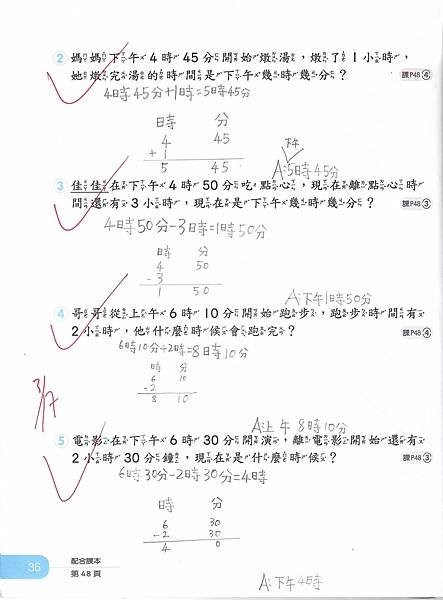 2 媽媽下午4時45分開始燉湯，燉了1小時，
她燉完湯的時間是下午幾時幾分？
課P48 4
4時45分+1時=5時45分
時 分
4 45
+ 1
5 45
下午
A:5時45分
3 佳佳在下午4時50分吃點心，現在離點心時
間還有3小時，現在是下午幾時幾分？
課P48 3
4時50分-3時=1時50分
時 分
4 50
-3
1 50
A:下午1時50分
4 哥哥從上午6時10分開始跑步，跑步時間有
2小時，他什麼時候會跑完？
課P48 4
6時10分+2時=8時10分
時 分
6 10
+2
8 10
3/7
A:上午8時10分
5 電影在下午6時30分開演，離電影開始還有
2小時30分鐘，現在是什麼時候？
課P48 3
6時30分-2時30分=4時
時 分
6 30
-2 30
4 0
A:下午4時
36
配合課本
第48頁